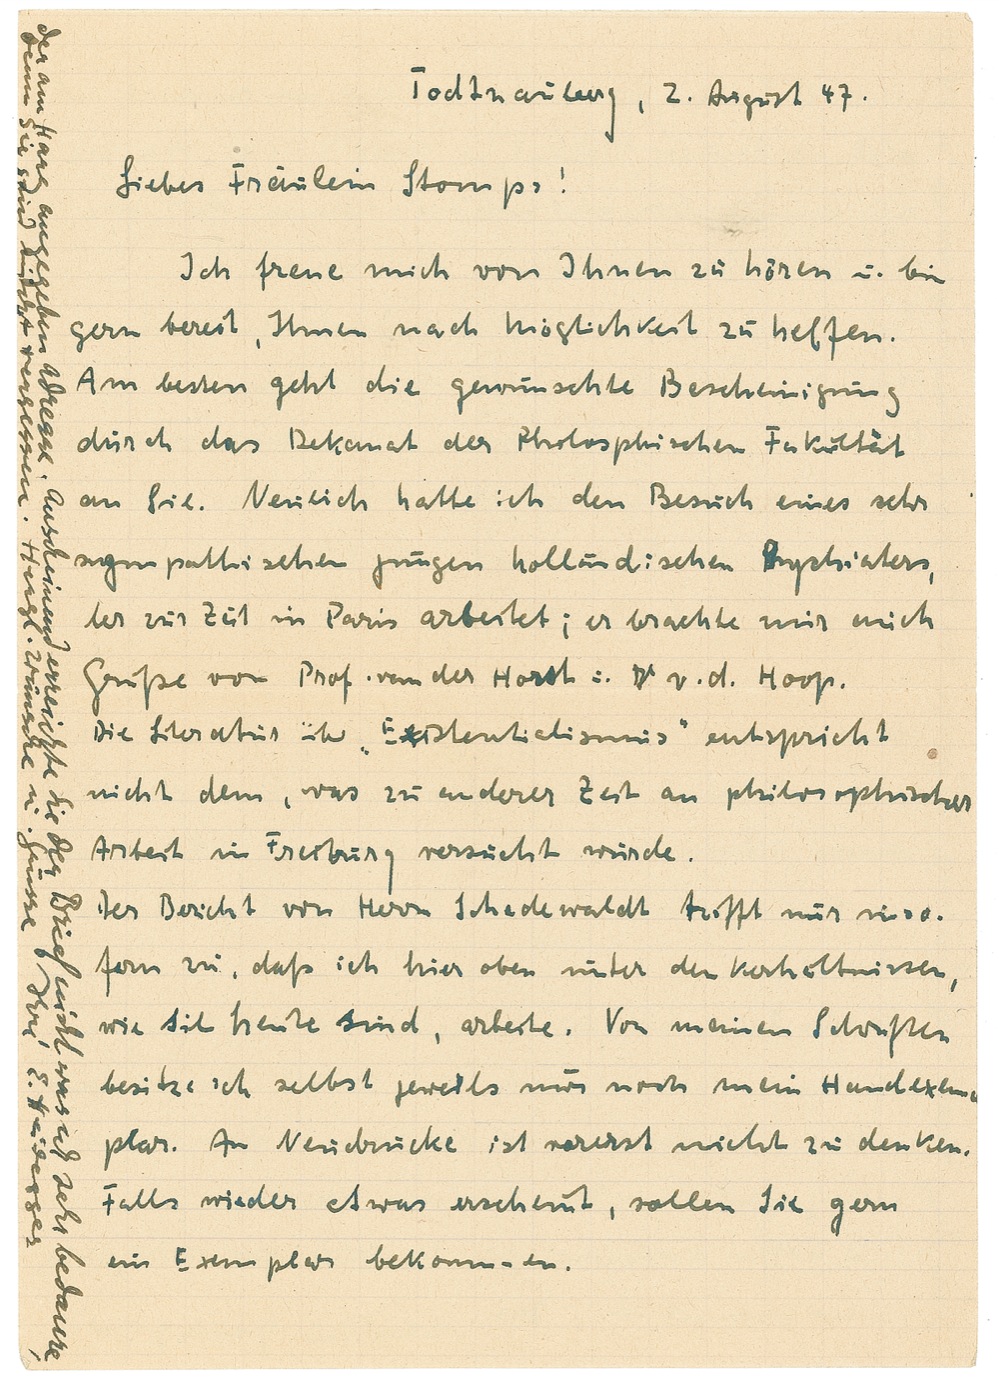 Todtnauberg, 2. August 47.
Liebes Fräulein Stomps!
Ich freue mich von Ihnen zu hören u. bin
gern bereit, Ihnen nach Möglichkeit zu helfen.
Am besten geht die gewünschte Bescheinigung
durch das Dekanat der Philosophischen Fakultät
an Sie. Neulich hatte ich den Besuch eines sehr
sympathischen jungen holländischen Psychiaters,
der zur Zeit in Paris arbeitet; er brachte mir auch
Grüße von Prof. van der Horst u. Dr v. d. Hoop.
Die Literatur über „Existentialismus" entspricht
nicht dem, was zu anderer Zeit an philosophischer
Arbeit in Freiburg versucht wurde.
Der Bericht von Herrn Schadewaldt trifft nur inso-
fern zu, daß ich hier oben unter den Verhältnissen,
wie sie heute sind, arbeite. Von meinen Schriften
besitze ich selbst jeweils nur noch mein Handexem-
plar. An Neudrucke ist vorerst nicht zu denken.
Falls wieder etwas erscheint, sollen Sie gern
ein Exemplar bekommen.
der am angegeben Adresse. Anscheinend erreichte Sie der Brief nicht was ich sehr bedaure,
denn Sie sind nicht vergessen. Herzl. Wünsche u. Grüsse Ihre E. Heidegger